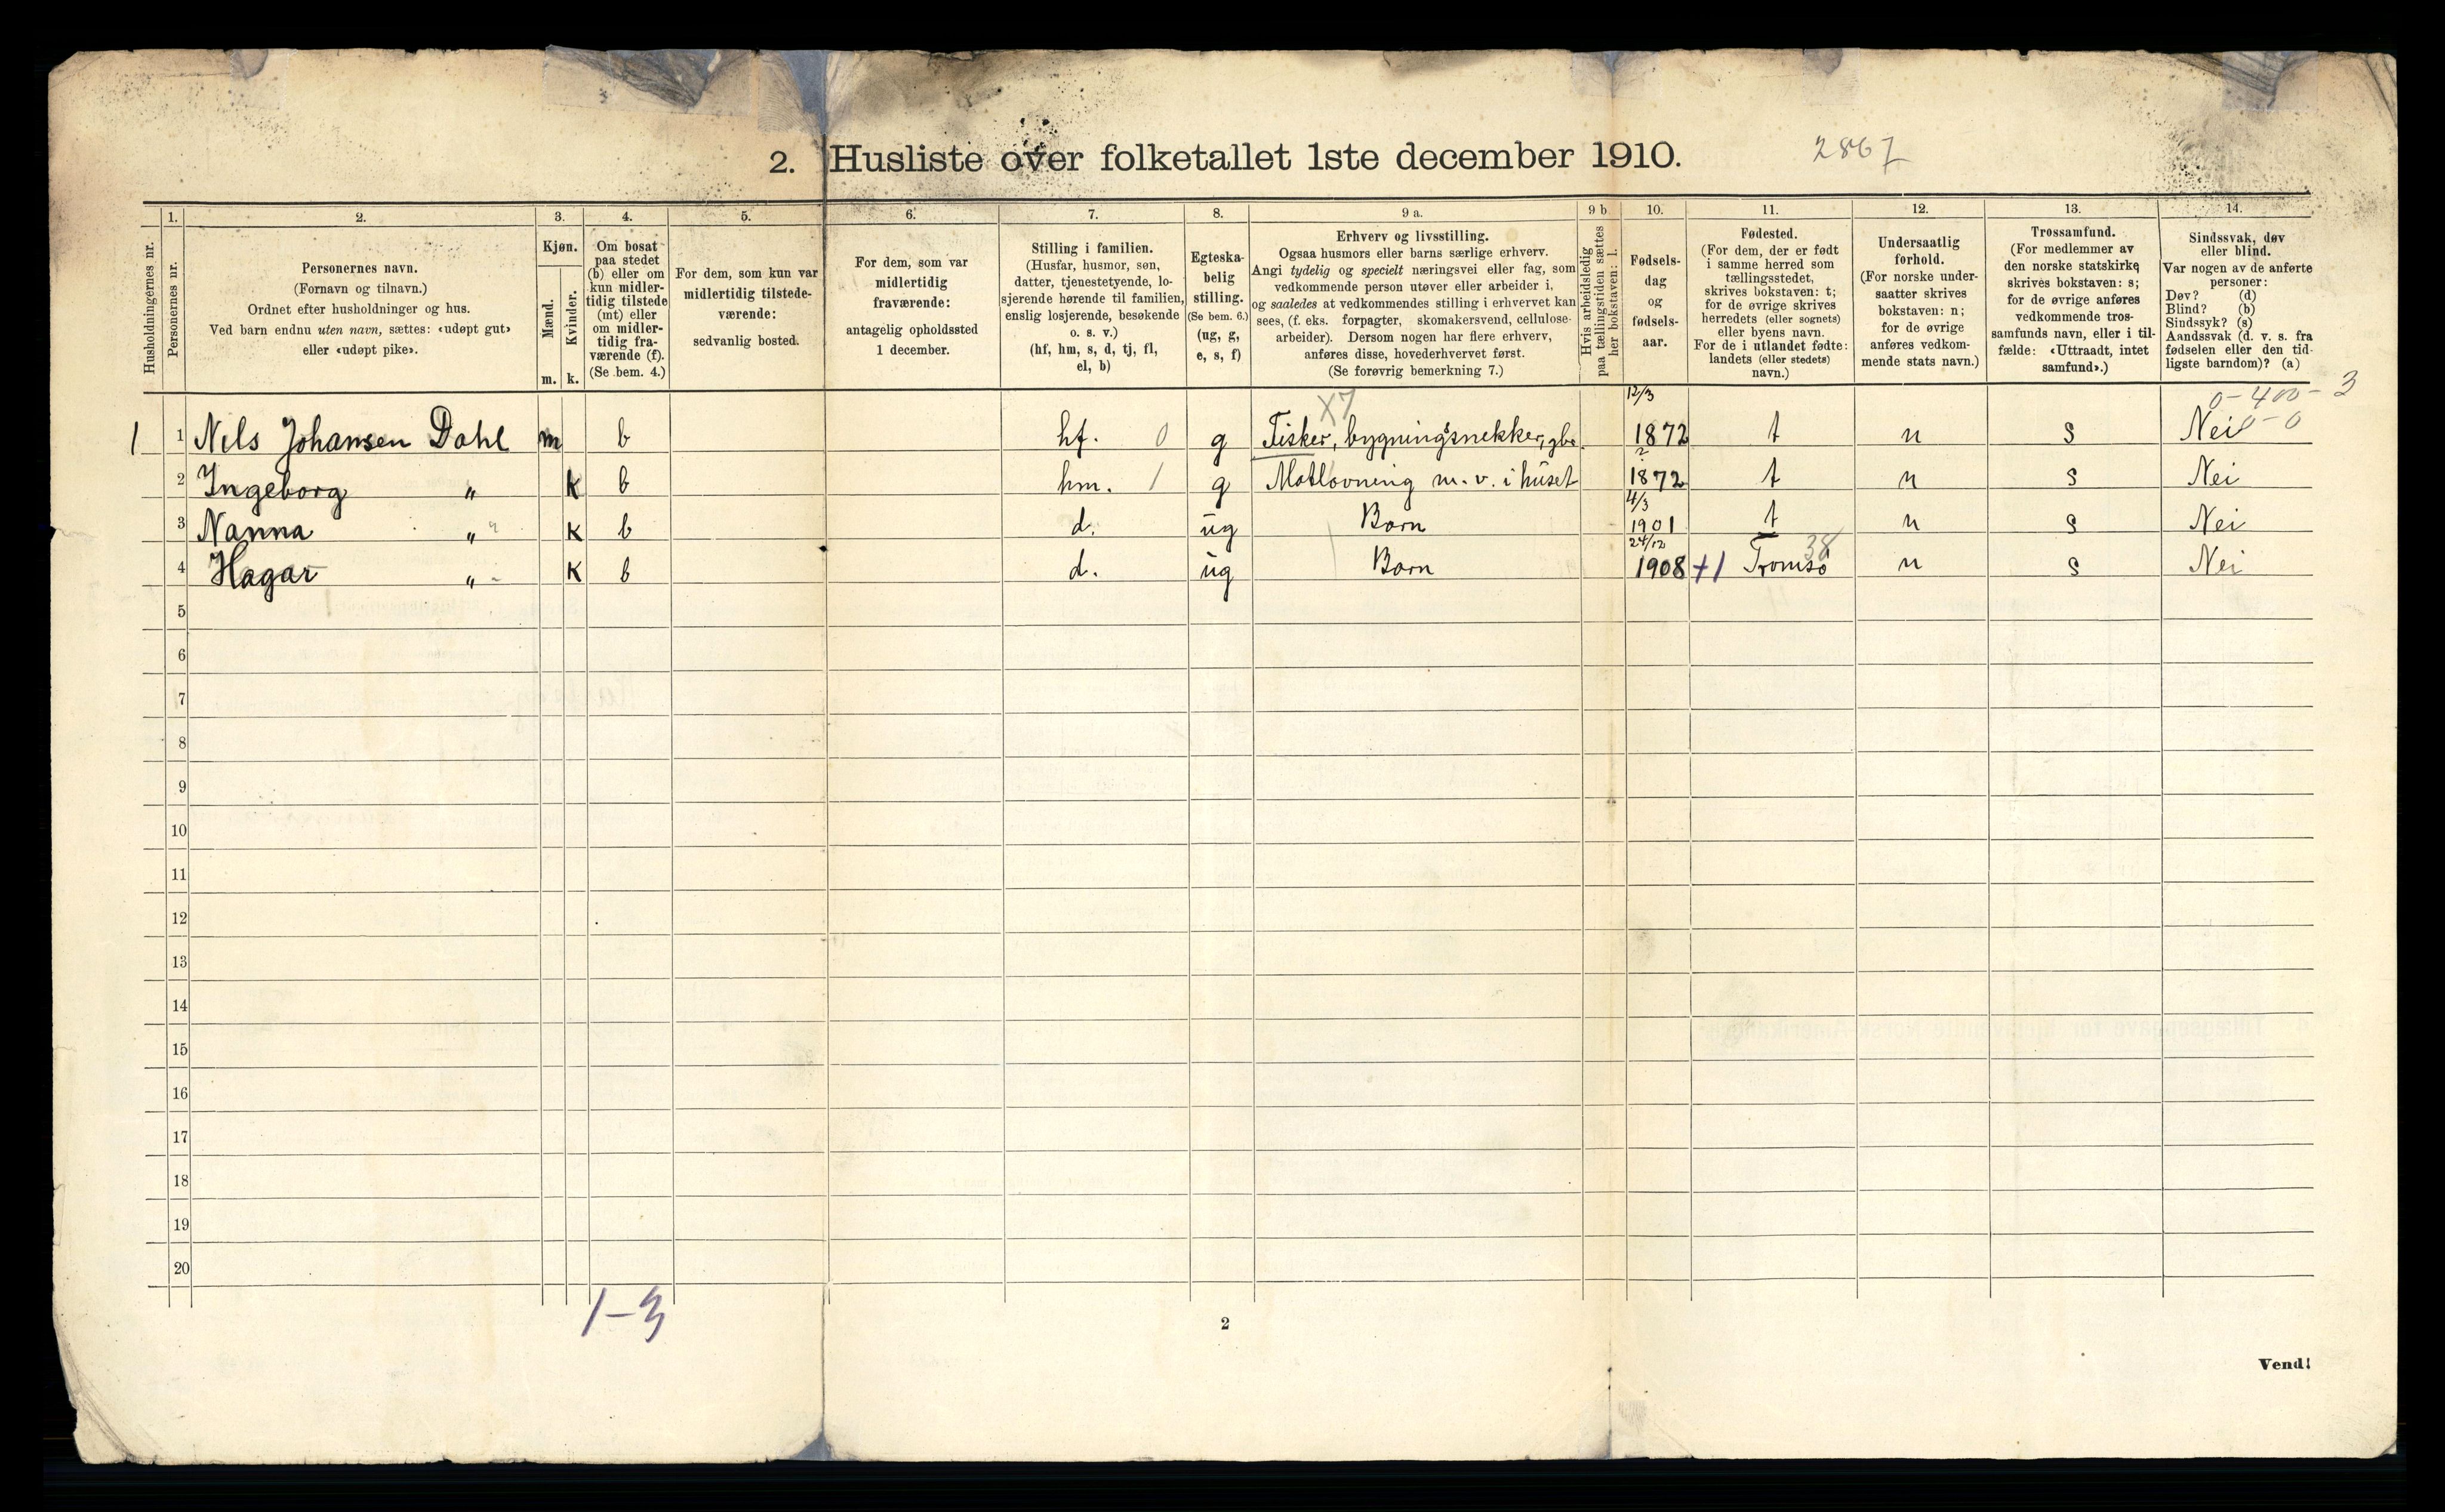 2. Husliste over folketallet 1ste december 1910.
2867
1. 2. 3. 4. 5. 6. 7. 8. 9 a. 9 b 10. 11. 12. 13. 14.
Husholdningernes nr.
Personernes nr.
Personernes navn.
(Fornavn og tilnavn.)
Ordnet efter husholdninger og hus.
Ved barn endnu uten navn, sættes: «udøpt gut»
eller «udøpt pike».
Kjøn.
Mænd.
Kvinder.
m. k.
Om bosat
paa stedet
(b) eller om
kun midler-
tidig tilstede
(mt) eller
om midler-
tidig fra-
værende (f).
(Se bem. 4.)
For dem, som kun var
midlertidig tilstede-
værende:
sedvanlig bosted.
For dem, som var
midlertidig
fraværende:
antagelig opholdssted
1 december.
Stilling i familien.
(Husfar, husmor, søn,
datter, tjenestetyende, lo-
sjerende hørende til familien,
enslig losjerende, besøkende
o. s. v.)
(hf, hm, s, d, tj, fl,
el, b)
Egteska-
belig
stilling.
(Se bem. 6.)
(ug, g,
e, s, f)
Erhverv og livsstilling.
Ogsaa husmors eller barns særlige erhverv.
Angi tydelig og specielt næringsvei eller fag, som
vedkommende person utøver eller arbeider i,
og saaledes at vedkommendes stilling i erhvervet kan
sees, (f. eks. forpagter, skomakersvend, cellulose-
arbeider). Dersom nogen har flere erhverv,
anføres disse, hovederhvervet først.
(Se forøvrig bemerkning 7.)
Hvis arbeidsledig
paa tællingstiden sættes
her bokstaven: l.
Fødsels-
dag
og
fødsels-
aar.
Fødested.
(For dem, der er født
i samme herred som
tællingsstedet,
skrives bokstaven: t;
for de øvrige skrives
herredets (eller sognets)
eller byens navn.
For de i utlandet fødte:
landets (eller stedets)
navn.)
Undersaatlig
forhold.
(For norske under-
saatter skrives
bokstaven: n;
for de øvrige
anføres vedkom-
mende stats navn.)
Trossamfund.
(For medlemmer av
den norske statskirke
skrives bokstaven: s;
for de øvrige anføres
vedkommende tros-
samfunds navn, eller i til-
fælde: «Uttraadt, intet
samfund».)
Sindssvak, døv
eller blind.
Var nogen av de anførte
personer:
Døv? (d)
Blind? (b)
Sindssyk? (s)
Aandssvak (d. v. s. fra
fødselen eller den tid-
ligste barndom)? (a)
X7 12/3 0-400-3
1 1 Nils Johansen Dahl m b hf. 0 g Fisker, bygningssnekker, gbr 1872 t n s Nei 0-0
2 Ingeborg " k b hm. 1 g Matlovning m.v. i huset 1872 t n s Nei
4/3
3 Nanna " k b d. ug Barn 1901 t n s Nei
24/12 38
4 Hagar " k b d. ug Barn 1908 +1 Tromsø n s Nei
5
6
7
8
9
10
11
12
13
14
15
16
17
18
19
20
1-3
2
Vend!